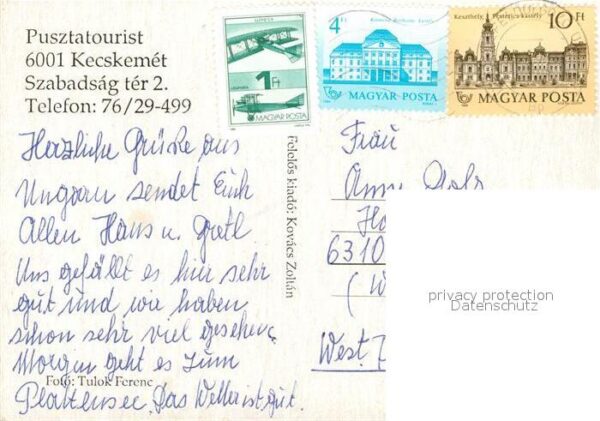 Pusztatourist
6001 Kecskemét
Szabadság tér 2.
Telefon: 76/29-499
1Ft
MAGYAR POSTA
4Ft
MAGYAR POSTA
Keszthely, Festetics-kastély
10Ft
MAGYAR POSTA
Herzliche Grüße aus
Ungarn sendet Euch
Allen Hans u. Gretl
Uns gefällt es hier sehr
gut und wir haben
schon sehr viel gesehen.
Morgen geht es zum
Foto: Tulok Ferenc
Plattensee. Das Wetter ist gut.
Felelős kiadó: Kovács Zoltán
Frau
6310
West
privacy protection
Datenschutz